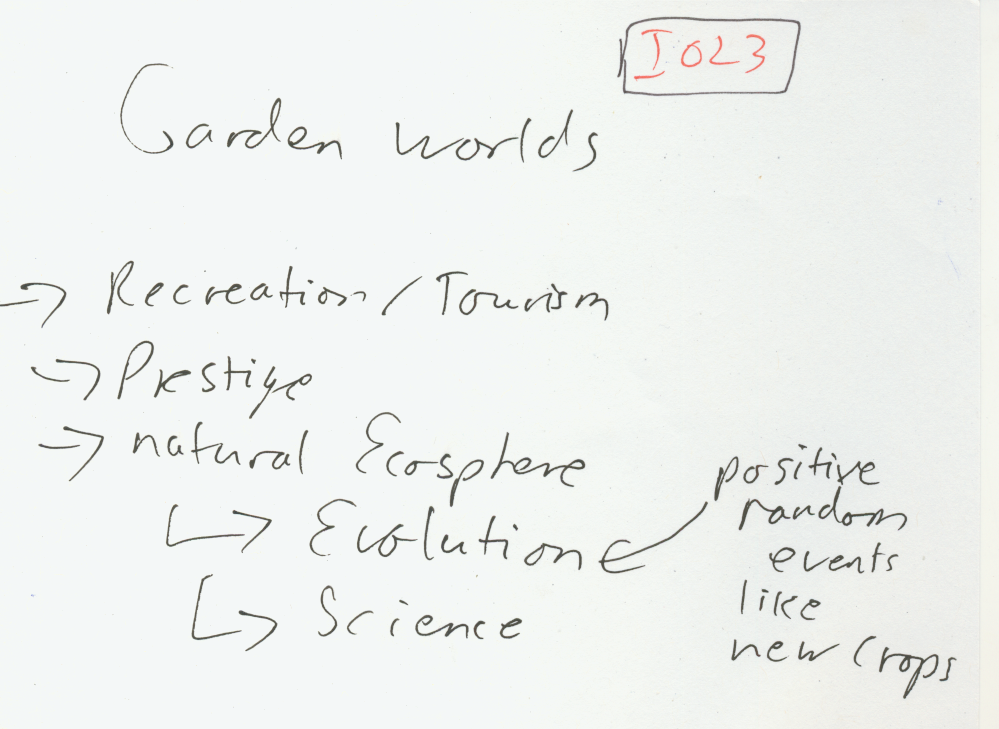 I023
Garden worlds
→ Recreation / Tourism
→ Prestige
→ natural Ecosphere
↳ Evolution ←
↳ Science
positive
random
events
like
new crops